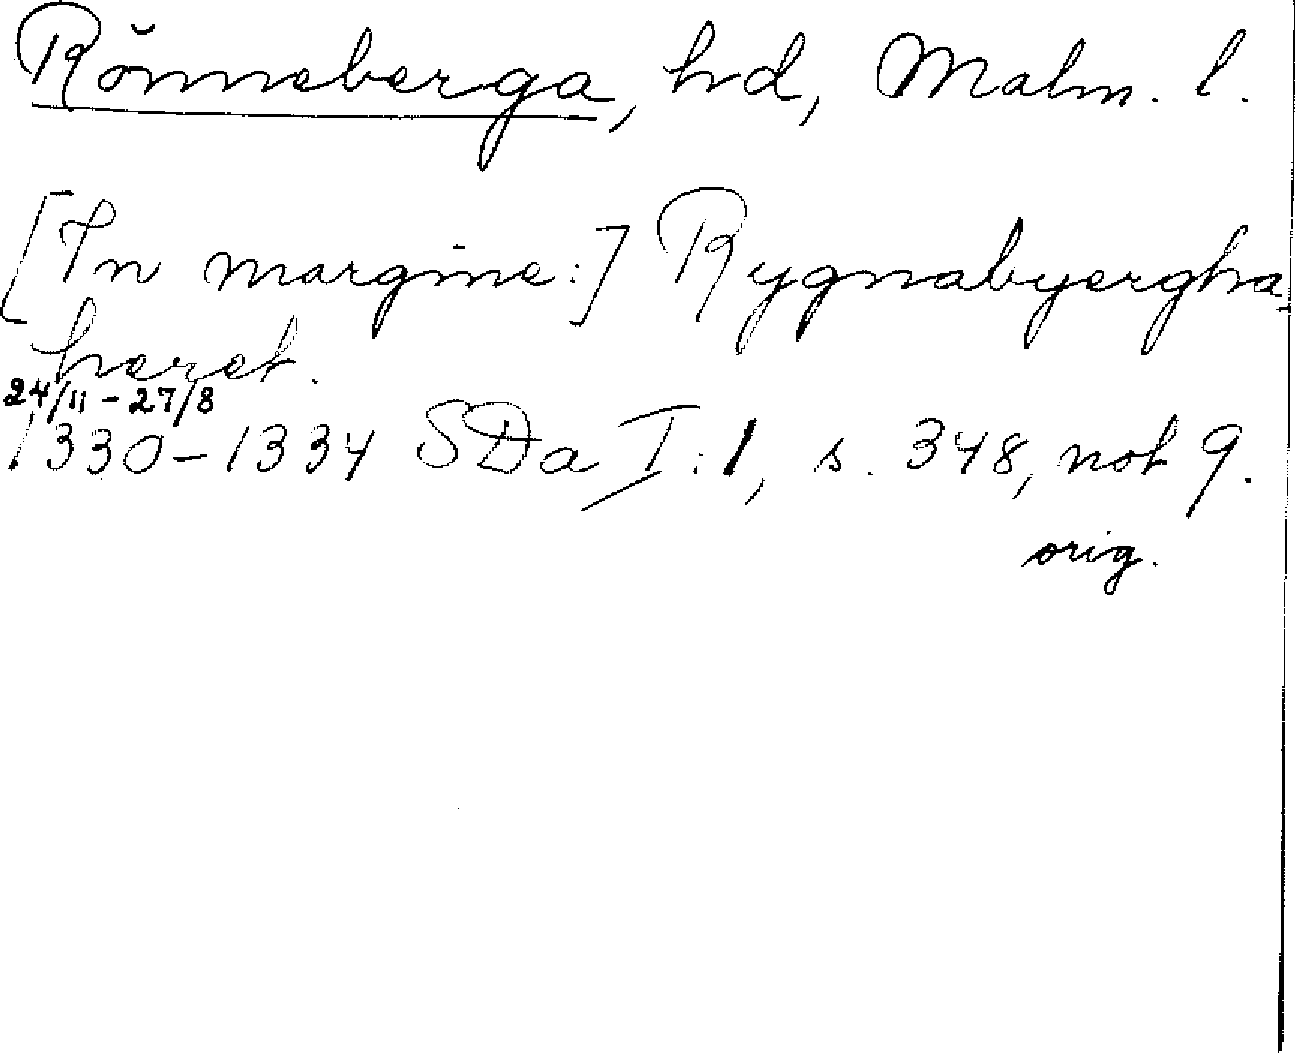 Rönneberga, hd, Malm. l.
[In margine:] Rygnabyergha-
heret.
24/11-27/8
1330-1334 SDa I:1, s. 348, not 9.
orig.